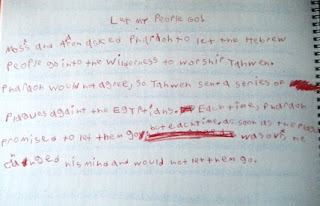 Let my People Go!
Moses and Aron asked Pharaoh to let the Hebrew
People go into the Wilderness to worship Yahweh.
Pharaoh would not agree, so Yahweh sent a series of
Plagues againt the Egyptians. Each time, Pharaoh
promised to let them go, but each time, as soon as the Plague
was over he
changed his mind and would not let them go.